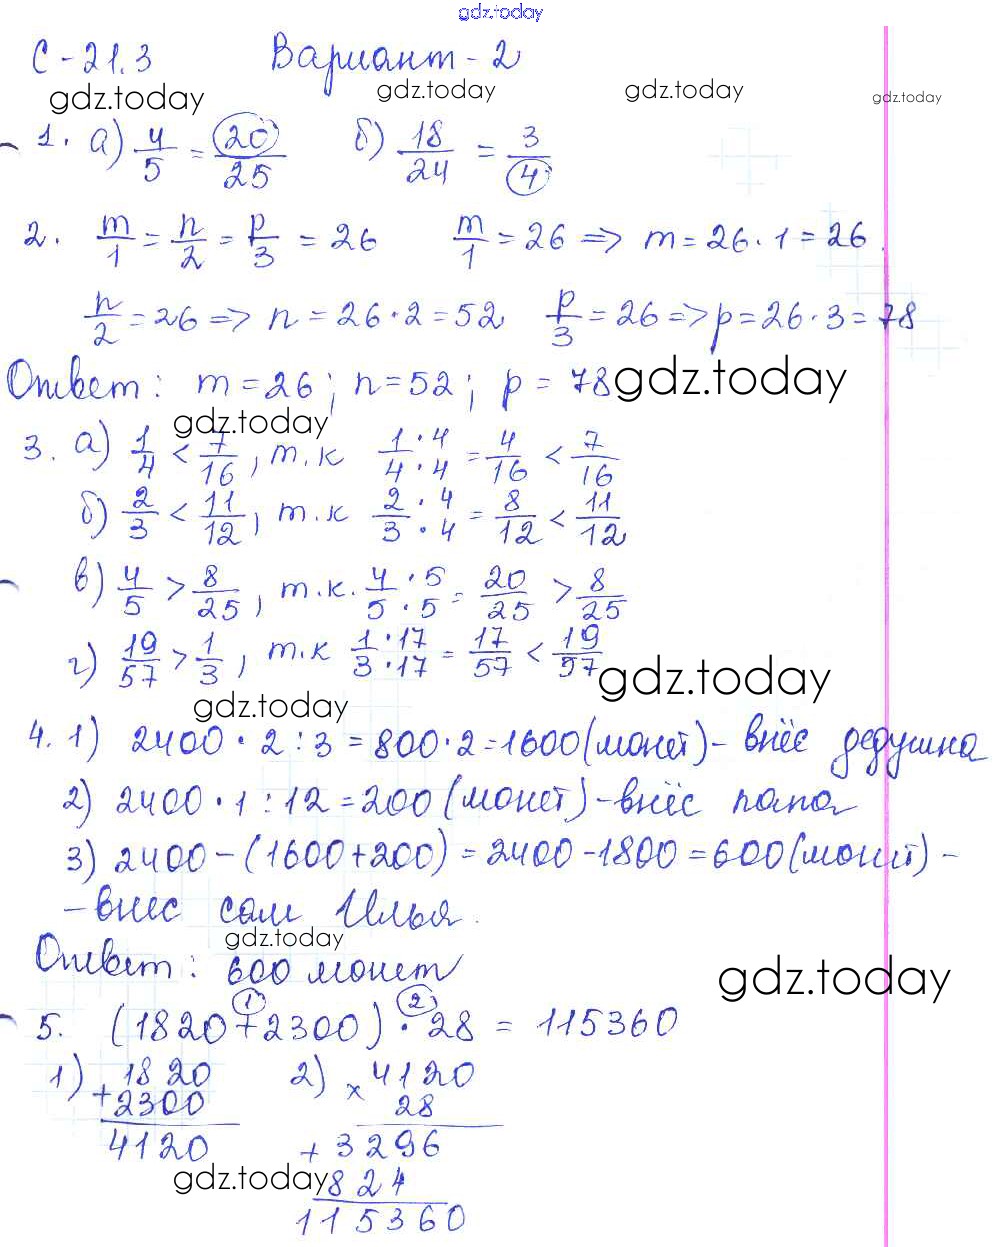 gdz.today
С-21.3 Вариант-2
gdz.today gdz.today gdz.today gdz.today
1. а) 4/5 = 20/25 б) 18/24 = 3/4
2. m/1 = n/2 = p/3 = 26 m/1 = 26 => m = 26·1 = 26.
n/2 = 26 => n = 26·2 = 52 p/3 = 26 => p = 26·3 = 78
Ответ: m = 26; n = 52; p = 78 gdz.today
gdz.today
3. а) 1/4 < 7/16, т.к 1·4/4·4 = 4/16 < 7/16
б) 2/3 < 11/12, т.к 2·4/3·4 = 8/12 < 11/12
в) 4/5 > 8/25, т.к. 4·5/5·5 = 20/25 > 8/25
г) 19/57 > 1/3, т.к 1·17/3·17 = 17/57 < 19/97
gdz.today
gdz.today
4. 1) 2400·2:3 = 800·2 = 1600 (монет) - внёс дедушка
2) 2400·1:12 = 200 (монет) - внёс папа
3) 2400 - (1600 + 200) = 2400 - 1800 = 600 (монет) -
- внёс сам Илья.
gdz.today
Ответ: 600 монет
gdz.today
1 2
5. (1820 + 2300) · 28 = 115360
1) 1820 2) 4120
+ 2300 × 28
4120 + 3296
gdz.today 824
115360